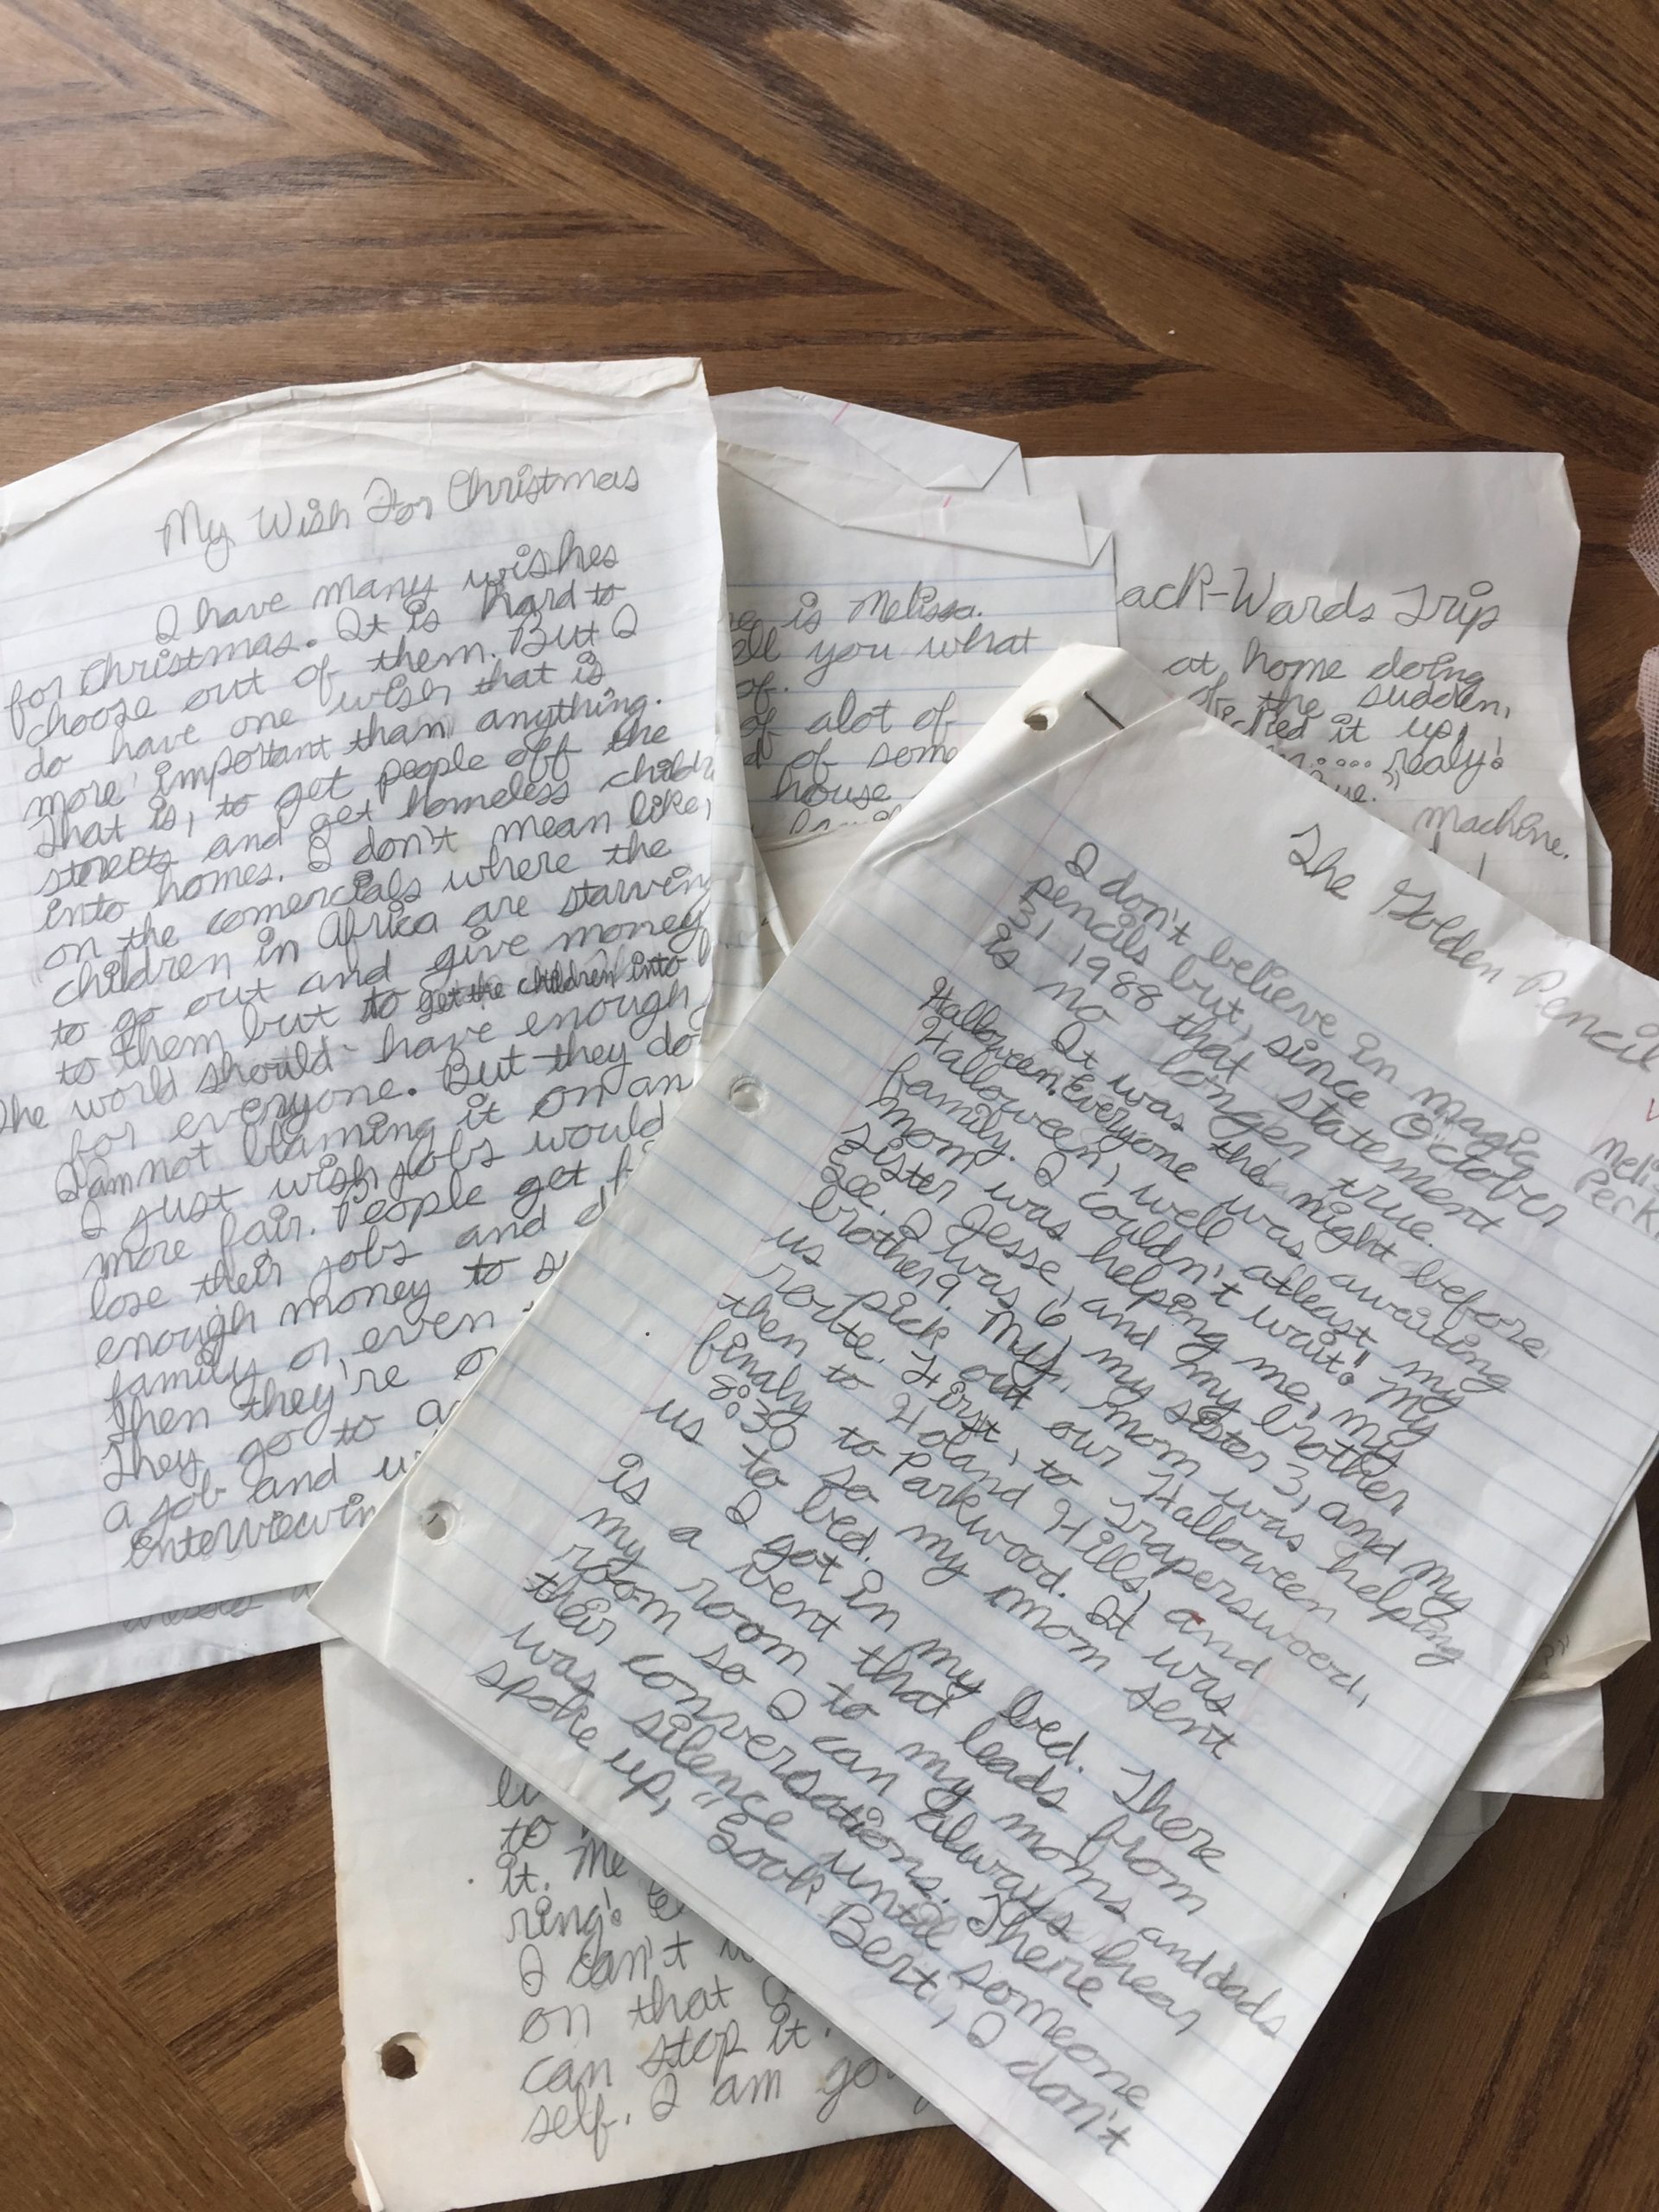 My Wish For Christmas
I have many wishes
for Christmas. It is hard to
choose out of them. But I
do have one wish that is
more important than anything.
That is, to get people off the
streets and get homeless childr
into homes. I don't mean like,
on the comercials where the
children in Africa are starving
to go out and give money
to them but to get the children into
The world should have enough
for everyone. But they do
I am not blaming it on an
I just wish jobs would
more fair. People get f
lose their jobs and d
enough money to su
family or even
Then they're o
They go to a
a job and w
enterviewin
e is Melissa.
ell you what
of.
of alot of
d of some
house
ack-Wards Trip
at home doing
of the sudden,
picked it up,
realy!
machine.
The Golden Pencil
Melis
Perk
I don't believe in magic
pencils but, since October
31, 1988 that statement
is no longer true.
It was the night before
Halloween. Everyone was awaiting
Halloween, well atleast my
family. I couldn't wait! My
mom was helping me, my
sister Jesse, and my brother
Lee. I was 6, my sister 3, and my
brother 9. My mom was helping
us pick out our Halloween
rorite. First, to Traperswoerd,
then to Holand Hills, and
finaly to Parkwood. It was
8:30 so my mom sent
us to bed.
I got in my bed. There
is a vent that leads from
my room to my moms and dads
room so I can always hear
their conversations. There
was silence until someone
spoke up, "Look Bert, I don't
to
it. Me
ring!
I can't
on that
can stop it.
self. I am go